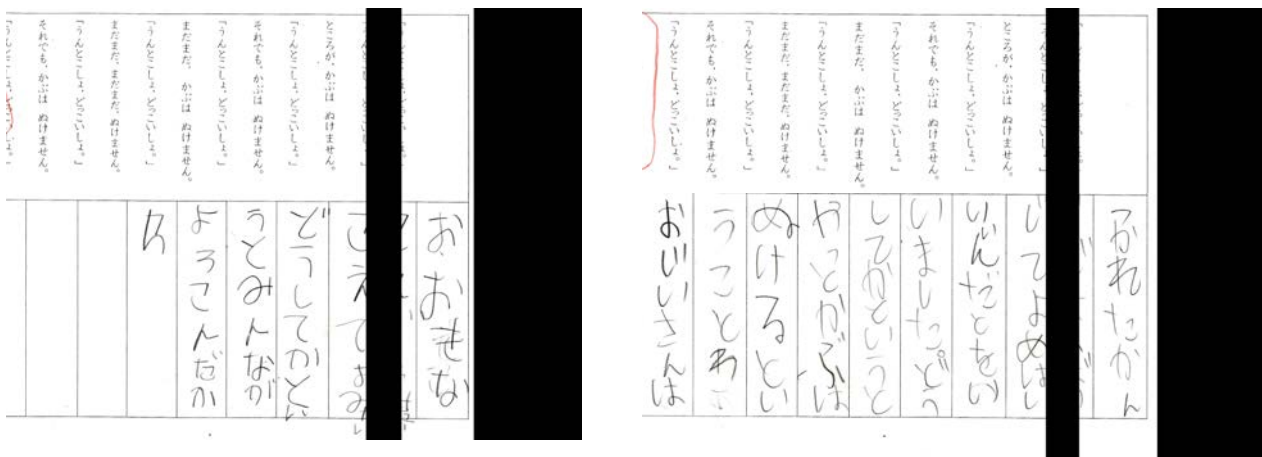 「うんとこしょ、どっこいしょ。」
ところが、かぶは ぬけません。
「うんとこしょ、どっこいしょ。」
それでも、かぶは ぬけません。
「うんとこしょ、どっこいしょ。」
まだまだ、かぶは ぬけません。
「うんとこしょ、どっこいしょ。」
まだまだ、まだまだ、ぬけません。
それでも、かぶは ぬけません。
「うんとこしょ、どっこいしょ。」
お、おきな
さえてよみ
どうしてかとい
うとみんなが
よろこんだか
ら
「うんとこしょ、
ところが、かぶは ぬけません。
「うんとこしょ、どっこいしょ。」
それでも、かぶは ぬけません。
「うんとこしょ、どっこいしょ。」
まだまだ、かぶは ぬけません。
「うんとこしょ、どっこいしょ。」
まだまだ、まだまだ、ぬけません。
「うんとこしょ、どっこいしょ。」
それでも、かぶは ぬけません。
「うんとこしょ、どっこいしょ。」
つかれたかん
じてよめばい
いんだとをい
いましたどう
してかというと
やっとかぶは
ぬけるとい
うことわ
おじいさんは